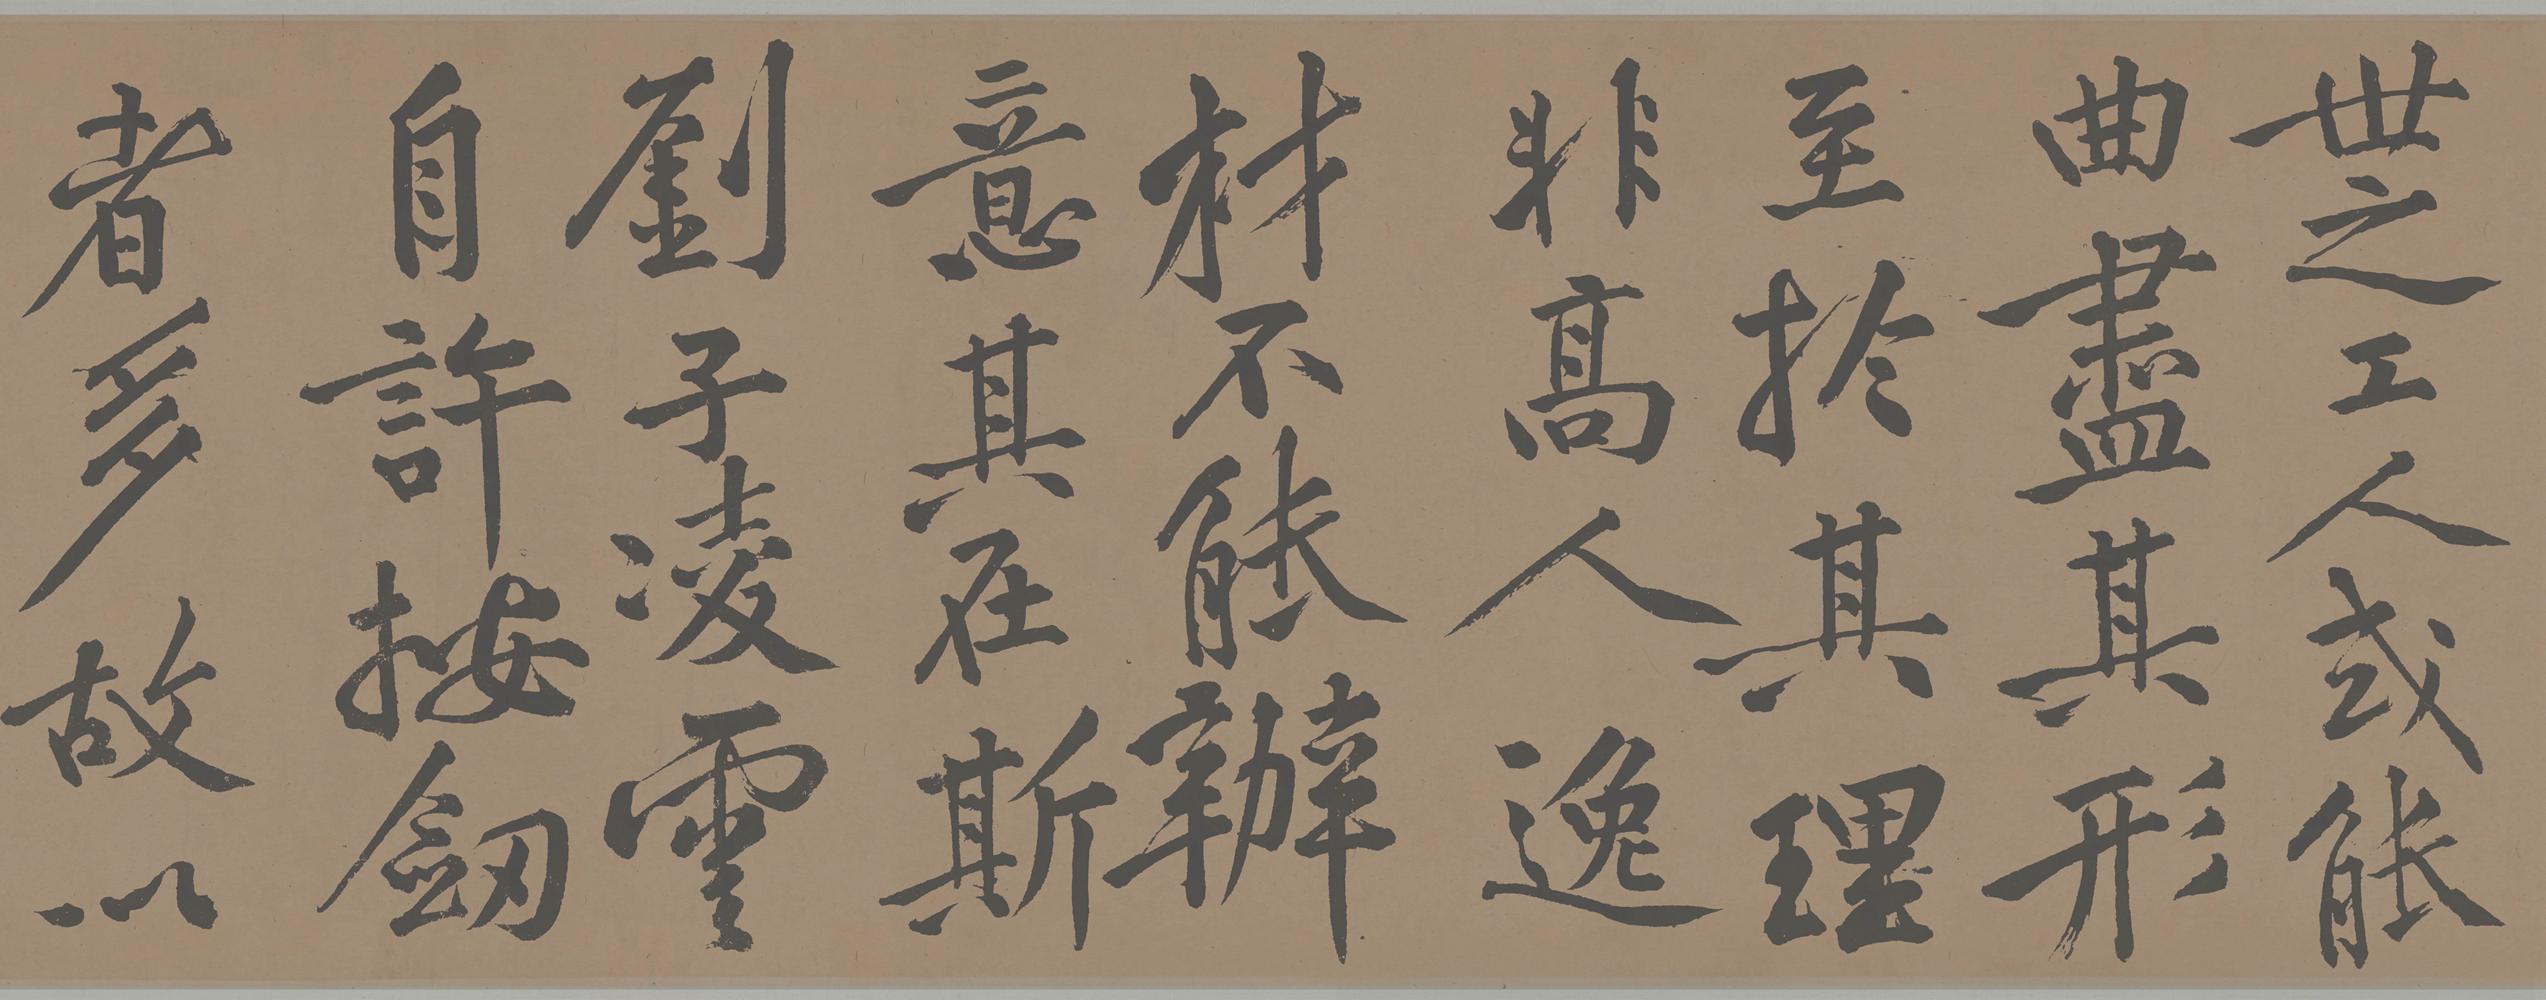 世之工人或能
曲盡其形
至於其理
非高人逸
材不能辦
意其在斯
劉子凌雲
自許按劒
者多故以